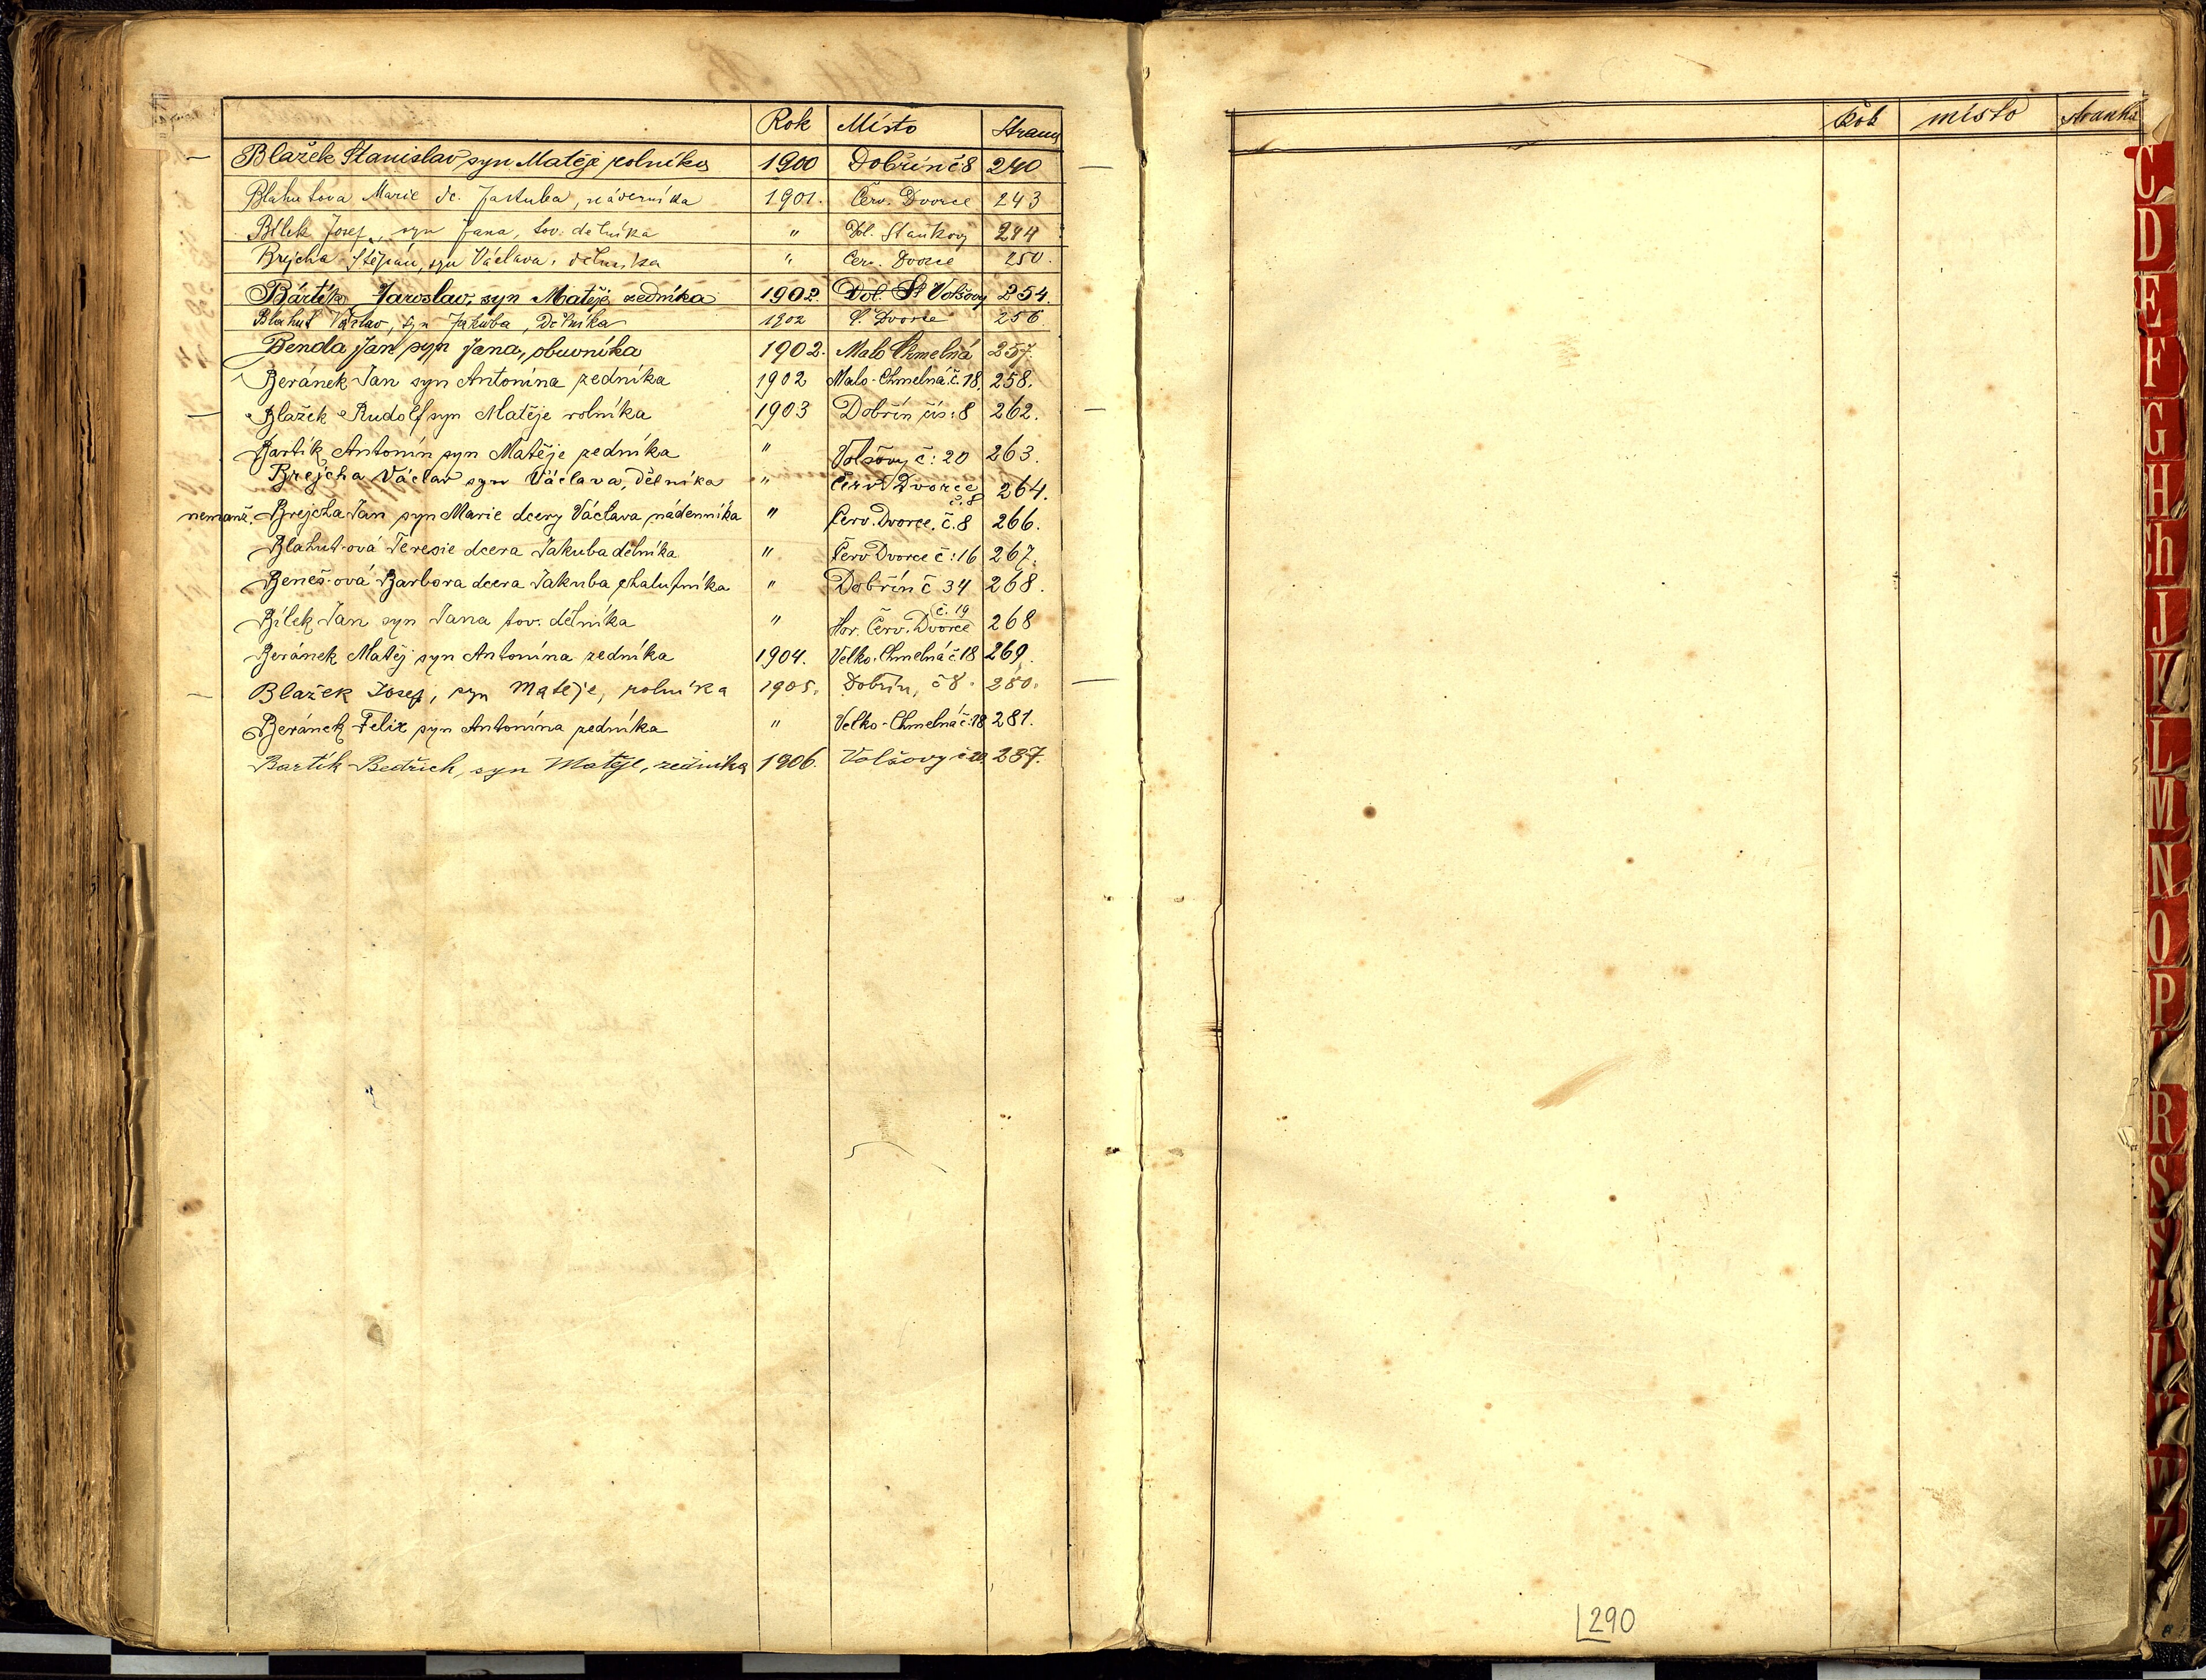 Rok Místo Strana
Blažek Stanislav syn Matěje rolníka 1900 Dobřín č 8 240
Blahutova Marie dc. Jakuba, nádeníka 1901. Červ. Dvorce 243
Bílek Josef, syn Jana, tov. dělníka " Dol. Staňkovy 244
Brejcha Štěpán, syn Václava, dělníka " Červ. Dvorce 250.
Bártík Jaroslav, syn Matěje zedníka 1902 Dol. St Volšovy 254.
Blahut Václav, syn Jakuba, Dělníka 1902 Č. Dvorce 256
Benda Jan syn Jana, obuvníka 1902. Malo Chmelná 257.
Beránek Jan syn Antonína zedníka 1902 Malo-Chmelná č. 18. 258.
Blažek Rudolf syn Matěje rolníka 1903 Dobřín čís: 8 262.
Bartík Antonín syn Matěje zedníka " Volšovy č: 20 263.
Brejcha Václav syn Václava, Dělníka " Červ Dvorce č. 8 264.
nemanž. Brejcha Jan syn Marie dcery Václava nádenníka " Červ. Dvorce. č. 8 266.
Blahut-ová Teresie dcera Jakuba dělníka " Červ Dvorce č: 16 267.
Beneš-ová Barbora dcera Jakuba chalupníka " Dobřín č 34 268.
Bílek Jan syn Jana tov. dělníka " Hor. Červ. Dvorce č. 19 268
Beránek Matěj syn Antonína zedníka 1904. Velko-Chmelná č 18 269.
Blažek Josef, syn Matěje, rolníka 1905. Dobřín, č 8. 280.
Beránek Felix syn Antonína zedníka " Velko-Chmelná č: 18 281.
Bartík Bedřich, syn Matěje, zedníka 1906. Volšovy č 20. 287.
Rok místo stránka
C
D
E
F
G
H
Ch
J
K
L
M
N
O
P
R
S
U
W
Z
290